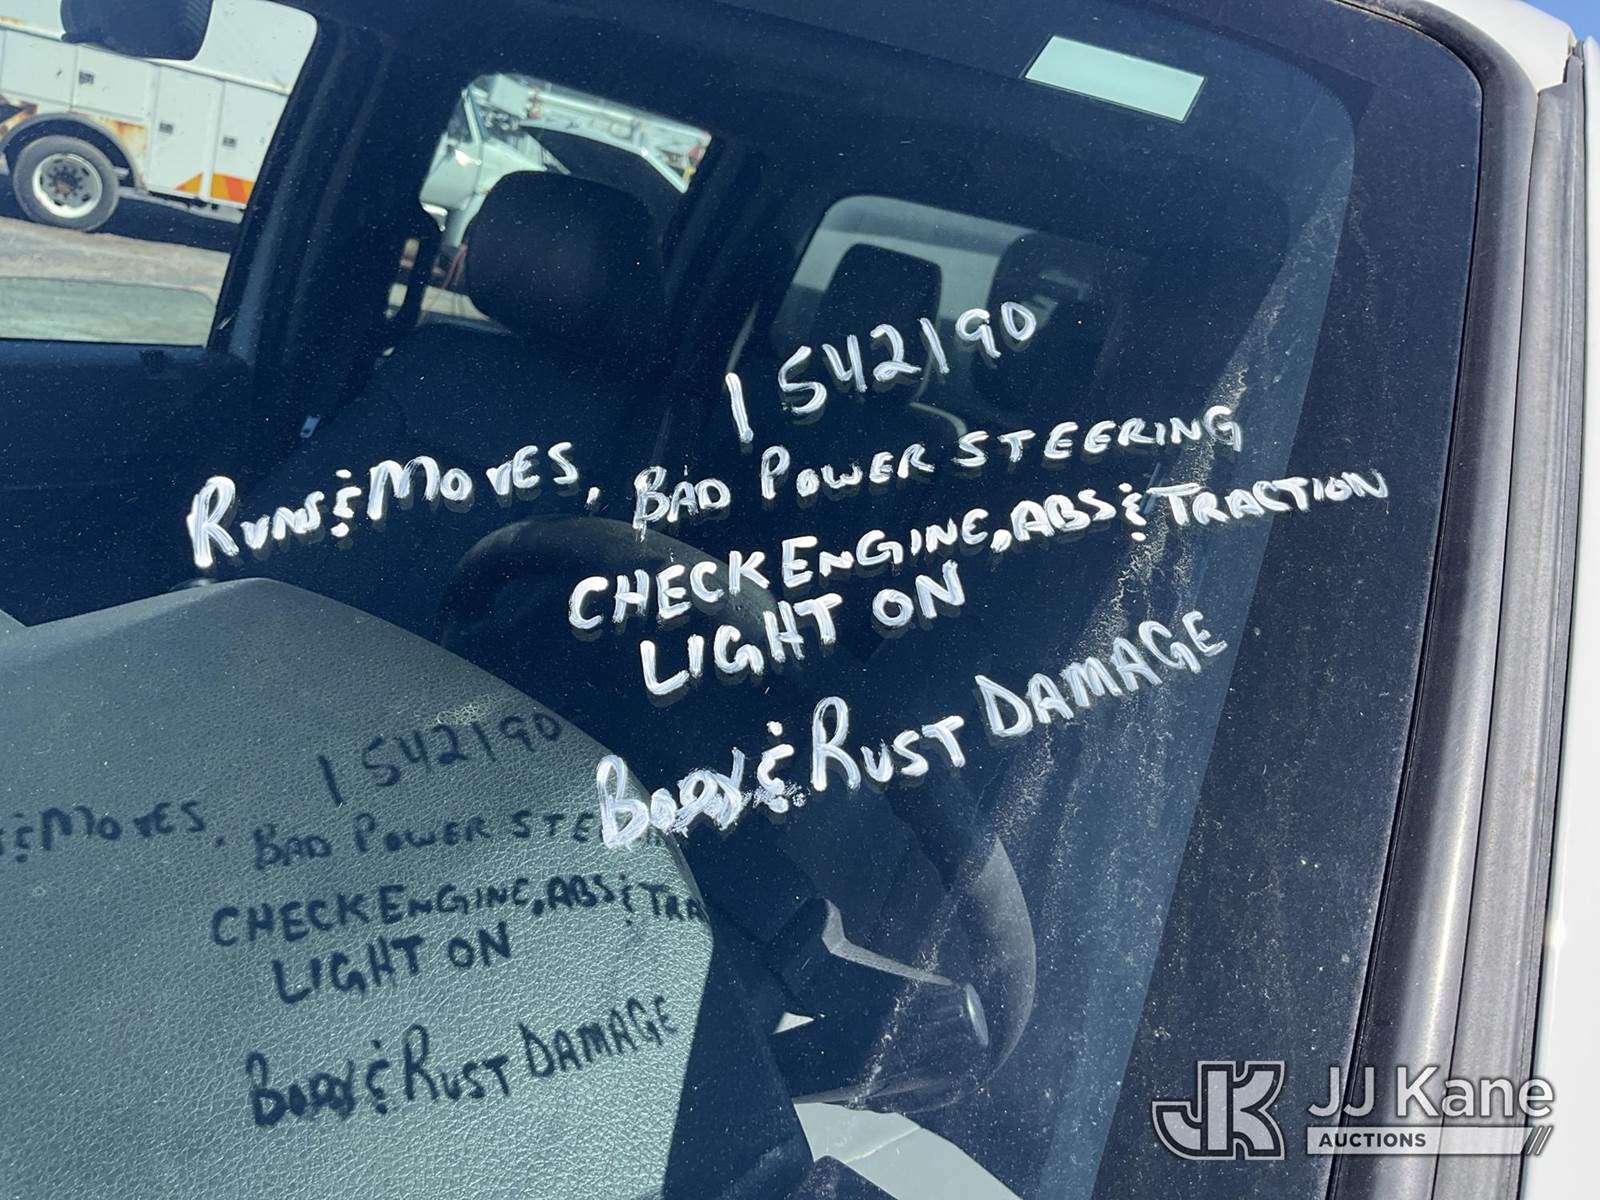 1542190
RUNS & MOVES, BAD POWER STEERING
CHECK ENGINE, ABS & TRACTION
LIGHT ON
BODY & RUST DAMAGE
1542190
& MOVES, BAD POWER STEE
CHECK ENGINE, ABS & TRA
LIGHT ON
BODY & RUST DAMAGE
JK JJ Kane
AUCTIONS